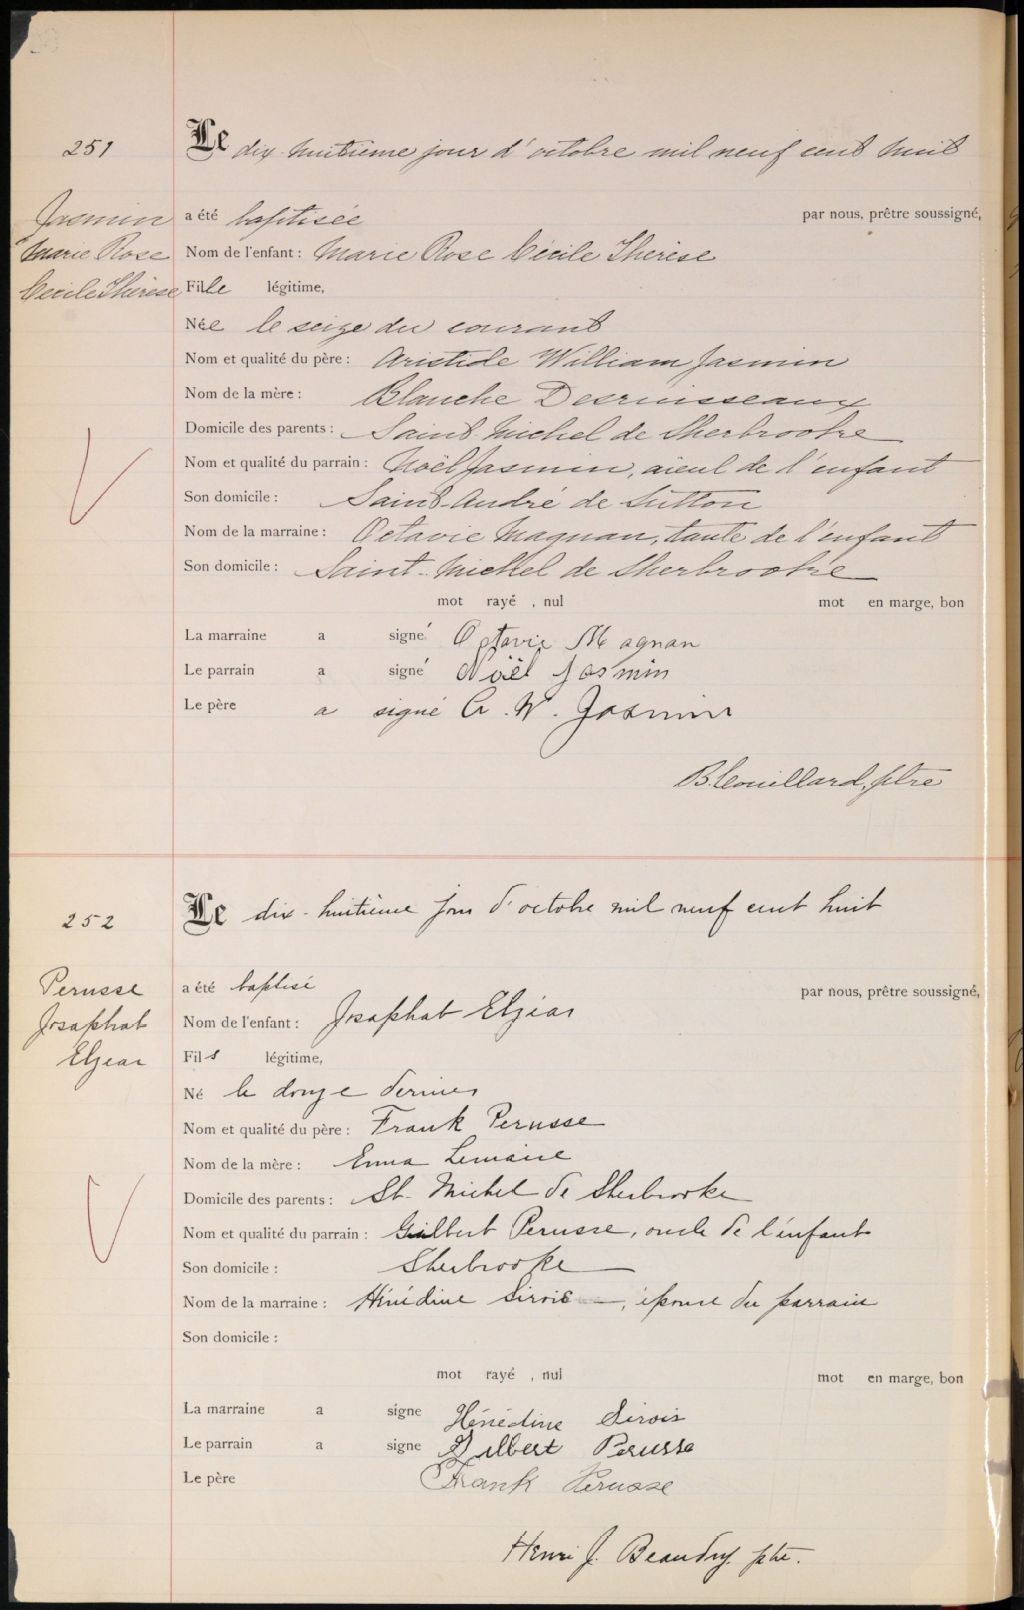 251
Le dix-huitième jour d'octobre mil neuf cent huit
Jasmin
Marie Rose
Cécile Thérèse
a été baptisée par nous, prêtre soussigné,
Nom de l'enfant : Marie Rose Cécile Thérèse
Fille légitime,
Née le seize du courant
Nom et qualité du père : Aristide William Jasmin
Nom de la mère : Blanche Desruisseaux
Domicile des parents : Saint-Michel de Sherbrooke
Nom et qualité du parrain : Noël Jasmin, aïeul de l'enfant
Son domicile : Saint-André de Sutton
Nom de la marraine : Octavie Magnan, tante de l'enfant
Son domicile : Saint-Michel de Sherbrooke
mot rayé , nul mot en marge, bon
La marraine a signé Octavie Magnan
Le parrain a signé Noël Jasmin
Le père a signé A. W. Jasmin
B. Couillard, ptre
252
Le dix-huitième jour d'octobre mil neuf cent huit
Perusse
Josaphat
Elzear
a été baptisé par nous, prêtre soussigné,
Nom de l'enfant : Josaphat Elzéar
Fils légitime,
Né le douze dernier
Nom et qualité du père : Frank Perusse
Nom de la mère : Emma Lemaire
Domicile des parents : St. Michel de Sherbrooke
Nom et qualité du parrain : Gilbert Perusse, oncle de l'enfant
Son domicile : Sherbrooke
Nom de la marraine : Hénédine Sirois —, épouse du parrain
Son domicile :
mot rayé , nul mot en marge, bon
La marraine a signe Hénédine Sirois
Le parrain a signe Gilbert Perusse
Le père Frank Perusse
Henri J. Beaudry. ptr.